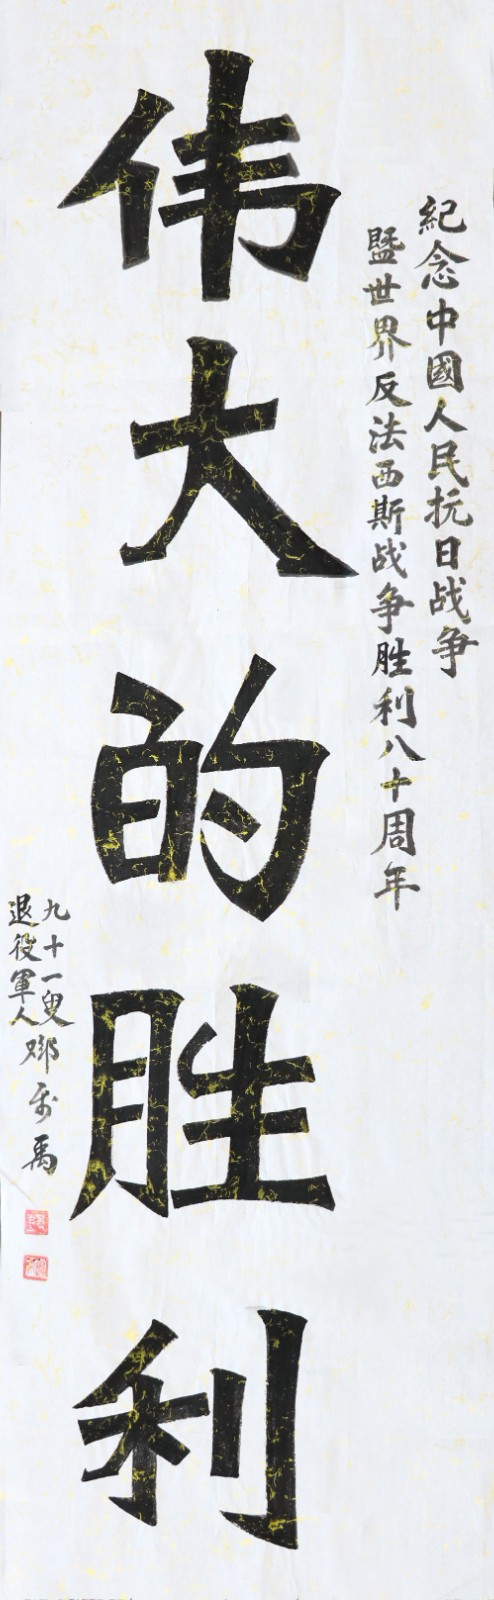 紀念中國人民抗日战争
暨世界反法西斯战争胜利八十周年
伟大的胜利
九十一叟
退役軍人
邓安禹